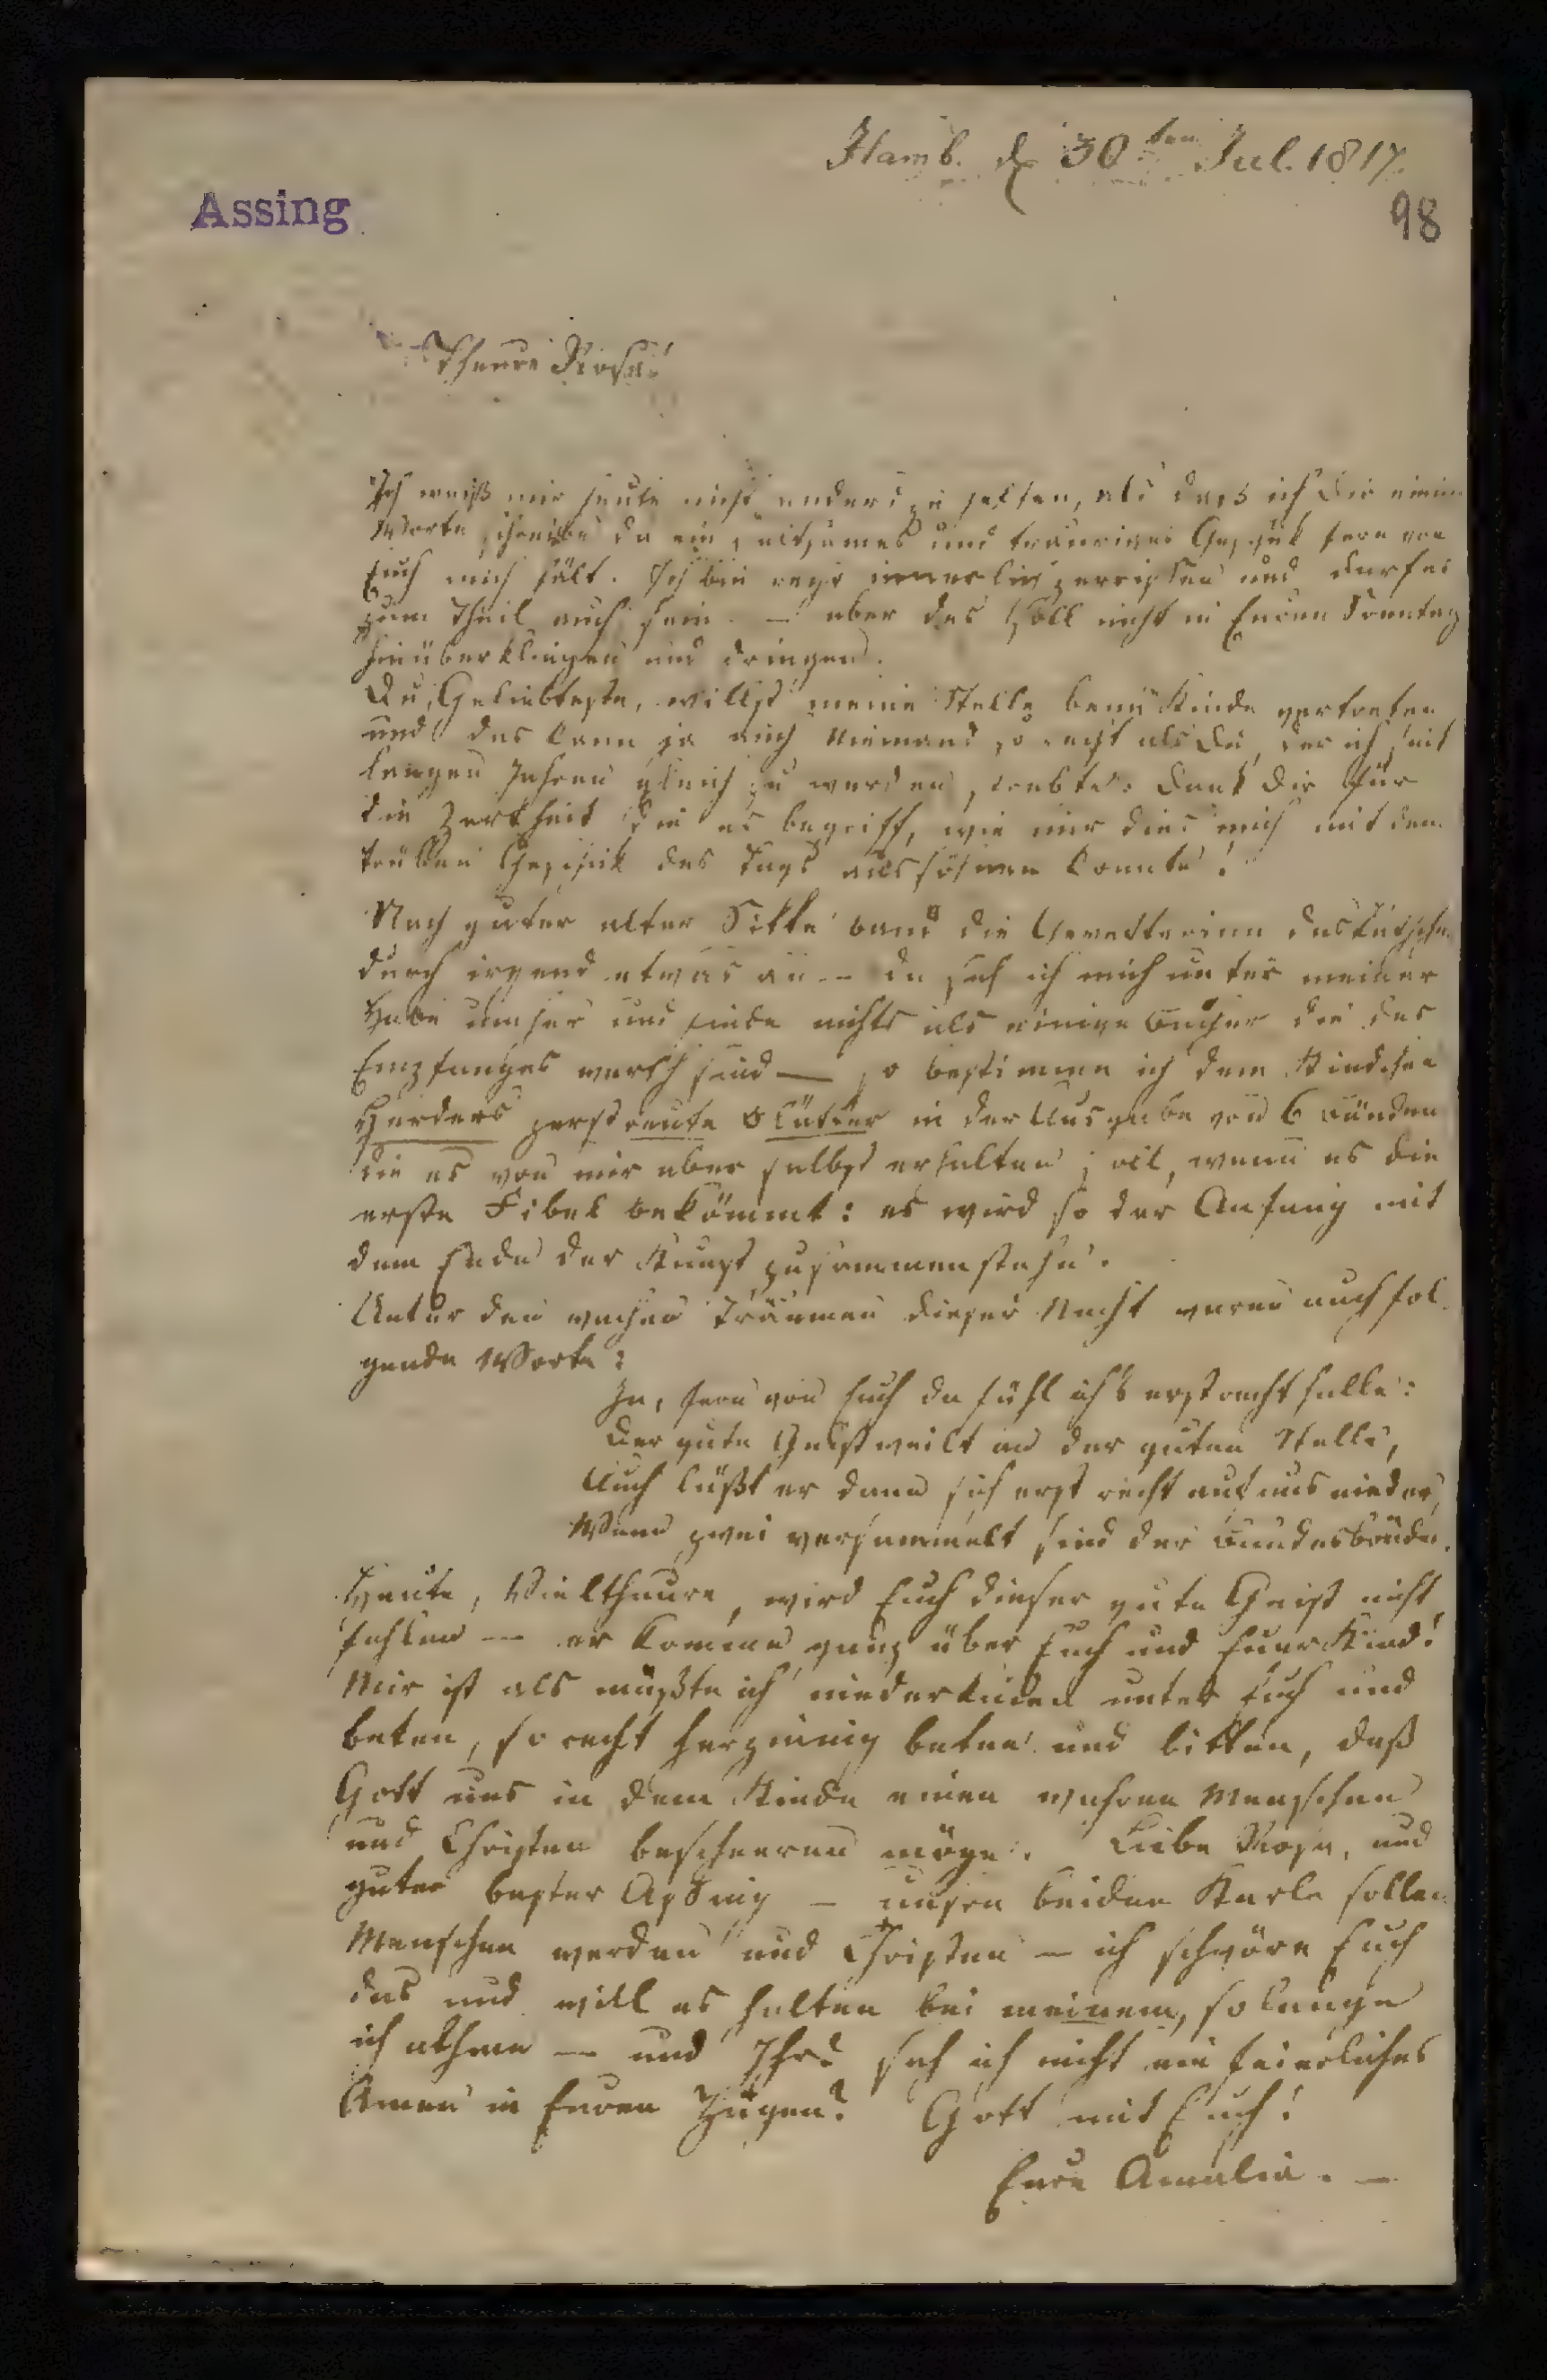 Hamb. d. 30ten Jul. 1817.
Assing
98
Theure Rosa!
Ich weiß mir heute nicht anders zu helfen, als daß ich Dir einige
Worte schreibe da ein seltsames und trauriges Geschik fern von
Euch mich hält. Ich bin recht innerlich zerrissen und darf es
zum Theil auch sein. — aber das soll nicht in Euren Sonntag
hinüberklingen und dringen.
Du, Geliebteste, willst meine Stelle beim Kinde vertreten
und das kann ja auch Niemand so recht als Du, der ich seit
langen Jahren gleich zu werden, strebte: Dank Dir für
die Zartheit die es begriff, wie nur dies mich mit dem
trüben Geschik des Tags aussöhnen konnte!
Nach guter alter Sitte band die Gevatterinn das
durch irgend etwas an — da seh ich mich unter meiner
Habe umher und finde nichts als einige Bücher die des
Empfanges werth sind — so bestimme ich dem Kindchen
Herders zerstreute Blätter in der Ausgabe von 6 Bänden
die es von mir aber selbst erhalten soll, wenn es die
erste Fibel bekömmt: es wird so der Anfang mit
dem Ende der Kunst zusammenstehn.
Unter den wachen Träumen dieser Nacht waren auch fol-
gende Worte:
Ja, fern von Euch da fühl ich's erst recht helle:
Der gute Geist weilt an der guten Stelle,
Auch läßt er dann sich erst recht auf uns nieder,
Wenn zwei versammelt sind der Bundesbrüder.
Heute, Vieltheure, wird Euch dieser gute Geist nicht
fehlen — er komme ganz über Euch und Euer Kind!
Mir ist als müßte ich niederknieen unter Euch und
beten, so recht herzinnig beten und bitten, daß
Gott uns in dem Kinde einen wahren Menschen
und Christen bescheeren möge. Liebe Rosa, und
guter bester Assing — unsre beiden Karle sollen
Menschen werden und Christen — ich schwöre Euch
das und will es halten bei meinem, so lange
ich athme — und Ihr? seh ich nicht ein feierliches
Amen in Euren Zügen? Gott mit Euch!
Eure Amalia. —